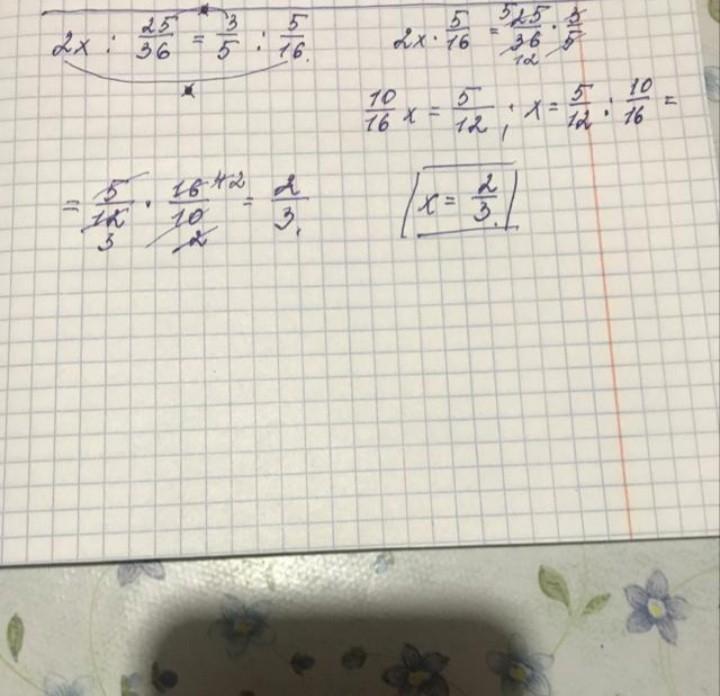 2x : 25/36 = 3/5 : 5/16.
2x · 5/16 = 25/36 · 3/5
5
12
10/16 x = 5/12 ; x = 5/12 : 10/16 =
= 5/12 · 16/10 = 2/3.
4 2
3 2
x = 2/3.